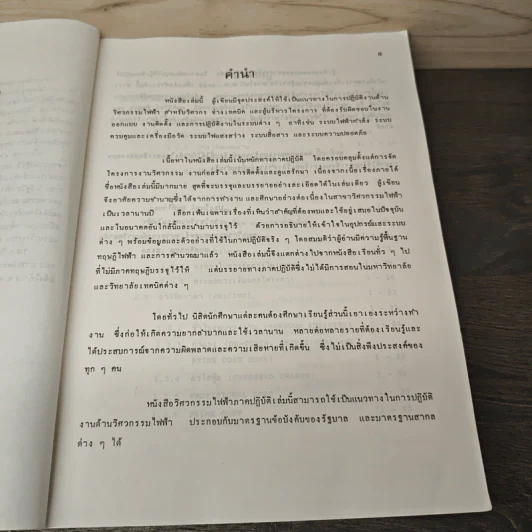 คำนำ
หนังสือเล่มนี้ ผู้เขียนมีจุดประสงค์ให้ใช้เป็นแนวทางในการปฏิบัติงานด้าน
วิศวกรรมไฟฟ้า สำหรับวิศวกร ช่างเทคนิค และผู้บริหารโครงการ ที่ต้องรับผิดชอบในงาน
ออกแบบ งานติดตั้ง และการปฏิบัติงานในระบบต่าง ๆ อาทิเช่น ระบบไฟฟ้ากำลัง ระบบ
ควบคุมและเครื่องมือวัด ระบบไฟแสงสว่าง ระบบสื่อสาร และระบบความปลอดภัย
เนื้อหาในหนังสือเล่มนี้เน้นหนักทางภาคปฏิบัติ โดยครอบคลุมตั้งแต่การจัด
โครงการงานวิศวกรรม งานก่อสร้าง การติดตั้งและดูแลรักษา เนื่องจากเนื้อเรื่องภายใต้
ชื่อหนังสือเล่มนี้มีมากมาย สุดที่จะบรรจุและบรรยายอย่างละเอียดได้ในเล่มเดียว ผู้เขียน
จึงอาศัยความชำนาญซึ่งได้จากการทำงาน และศึกษาอย่างต่อเนื่องในสาขาวิศวกรรมไฟฟ้า
เป็นเวลานานปี เลือกเฟ้นเฉพาะเรื่องที่เห็นว่าสำคัญที่ต้องพบและใช้อยู่เสมอในปัจจุบัน
และในอนาคตอันใกล้นี้และนำมาบรรจุไว้ ด้วยการอธิบายให้เข้าใจในอุปกรณ์และระบบ
ต่าง ๆ พร้อมข้อมูลและตัวอย่างที่ใช้ในภาคปฏิบัติจริง ๆ โดยสมมติว่าผู้อ่านมีความรู้พื้นฐาน
ทฤษฎีไฟฟ้า และการคำนวณมาแล้ว หนังสือเล่มนี้จึงแตกต่างไปจากหนังสือเรียนทั่ว ๆ ไป
ที่ไม่มีภาคทฤษฎีบรรจุไว้ให้ แต่บรรยายทางภาคปฏิบัติซึ่งไม่ได้มีการสอนในมหาวิทยาลัย
และวิทยาลัยเทคนิคต่าง ๆ
โดยทั่วไป นิสิตนักศึกษาแต่ละคนต้องศึกษาเรียนรู้ส่วนนี้เอาเองระหว่างทำ
งาน ซึ่งก่อให้เกิดความยากลำบากและใช้เวลานาน หลายต่อหลายรายที่ต้องเรียนรู้และ
ได้ประสบการณ์จากความผิดพลาดและความเสียหายที่เกิดขึ้น ซึ่งไม่เป็นสิ่งพึงประสงค์ของ
ทุก ๆ คน
หนังสือวิศวกรรมไฟฟ้าภาคปฏิบัติเล่มนี้สามารถใช้เป็นแนวทางในการปฏิบัติ
งานด้านวิศวกรรมไฟฟ้า ประกอบกับมาตรฐานข้อบังคับของรัฐบาล และมาตรฐานสากล
ต่าง ๆ ได้